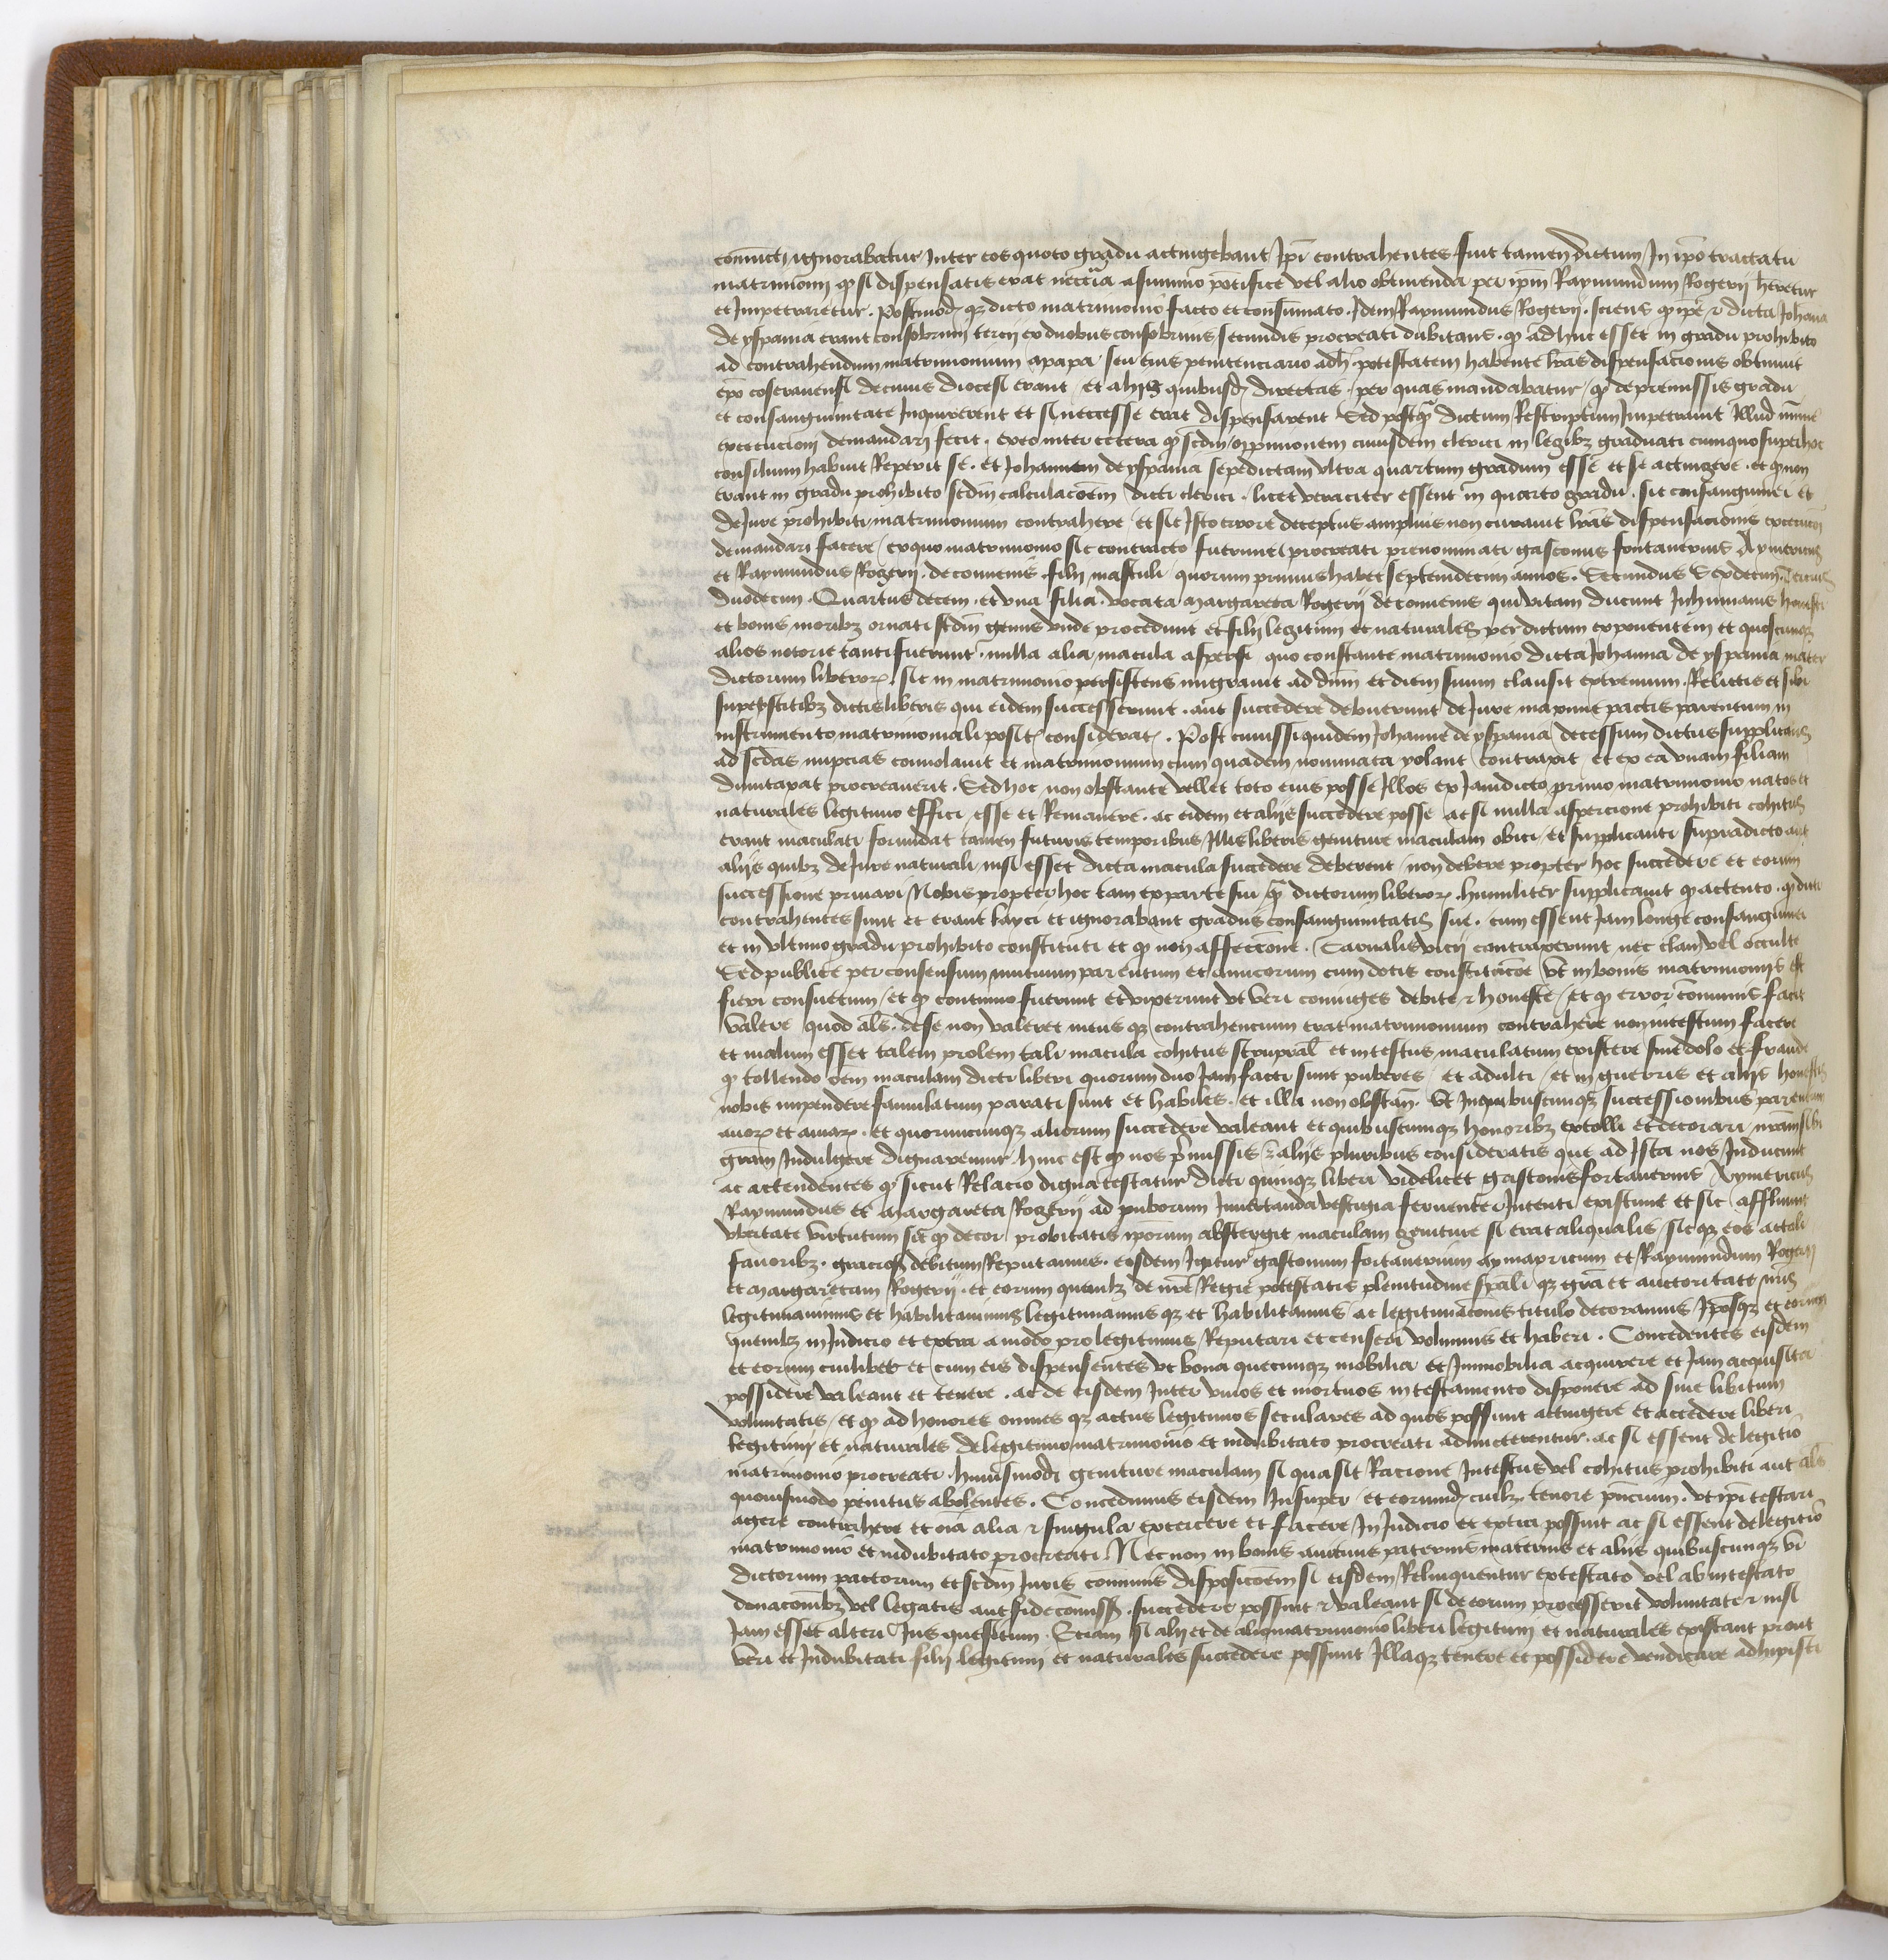 coniuncti ignorabatur Inter eos quoto gradu actingebant Ipi contrahentes fuit tamen dictum In ipo tractatu
matrimonij q si dispensatio erat neccia a summo potifice vel alio obtinenda per ipm Raymundum Rogerij heretur
et Impetraretur . Postmodu qz dicto matrimonio facto et consumato . Idem Raymundus Rogerij . sciens q ipe & dicta Johana
de yspania erant consobrini tercij ex duobus consobrinis secundis procreati dubitans . q adhuc esset in gradu prohibito
ad contrahendum matrimonium a papa seu eius penitenciario adh potestatem habente lras dispensacionis obtinuit
epo coseranensi de cuius diocesi erant / et alijs quibusd directas / per quas mandabatur / q de premissis gradu
et consanguinitate Inquirerent et si neccesse erat dispensarent Sed postq dictum Restriptum Impetrauit Illud mime
execucioni demandari fecit . ex eo inter cetera q scdm oppinionem cuiusdem clerici in legibz graduati cum quo super hoc
consilium habuit Reperit se . et Johannem de yspania sepedictam vltra quartum gradum esse et se actingere . et q non
erant in gradu prohibito scdm calculacoem dicti clerici . licet veraciter essent in quarto gradu . sic consanguinei et
de Jure prohibiti matrimonium contrahere / et sic Isto errore deceptus amplius non curauit lras dispensacionis execucioi
demandari facere / ex quo matrimonio sic contracto fuerunt procreati prenominati gastonus fortanerius Aymericus
et Raymundus Rogerij . de conuenis . filij masculi quorum primus habet septemdecim annos . Secundus Sexdecim . Tercius
duodecim . Quartus decem . et vna filia . vocata Margareta Rogerij de conuenis qui vitam ducunt Inhumanis honesti
et bonis moribz ornati scdm genus vnde procedunt et filij legitimi et naturales per dictum exponentem et quoscunqz
alios notorie tanti fuerunt . nulla alia macula aspersi quo constante matrimonio dicta Johanna de yspania mater
dictorum liberor . sic in matrimonio persistens migrauit ad dnm et diem suum clausit extremum . Relictis et sibi
superstitibz dictis liberis qui eidem successerunt . aut succedere debuerunt de Jure maxime pactis parentum in
instrumento matrimoniali posit considerat . Post cuiussiquidem Johanne de yspania decessum dictus supplicans
ad scdas nupcias conuolauit et matrimonium cum quadem nominata yolant contraxit et ex ea vnam filiam
dumtaxat procreauerit . Sed hoc non obstante vellet toto eius posse Illos ex Jamdicto primo matrimonio natos et
naturales legitimo effici esse et Remanere . ac eidem et alijs succedere posse ac si nulla aspercione prohibiti cohitus
erant maculati formidat tamen futuris temporibus Illis liberis geniture maculam obici / et supplicanti supradicto aut
alijs quibz de Jure naturali nisi esset dicta macula succedere deberent / non debere propter hoc succedere et eorum
successione priuari Nobis propter hoc tam ex parte sui q dictorum liberor . humiliter supplicauit q actento . q dicti
contrahentes sunt et erant layci et ignorabant gradus consanguinitatis sue . cum essent Jam longe consanguinei
et in vltimo gradu prohibito constituti et q non affeccione . Carnalis vicij contraxerunt nec clam vel occulte
Sed publice per consensum mutuum parentum et amicorum cum dotis constitucoe vt in bonis matrimonijs est
fieri consuetum / et q continuo fuerunt et vixerunt vt veri coniuges debite & honeste / et q error comunis facit
valere quod als . de se non valeret mens qz contrahencium erat matrimonium contrahere non incestum facere
et malum esset talem prolem tali macula cohitus et incestus maculatum existere sine dolo et fraude
q tollendo oem maculam dicti liberi quorum duo Jam facti sunt puberes / et adulti / et in guerris et alijs honestis
nobis impendere famulatum parati sunt et habiles . et illa non obstan . Vt In quibuscunqz successionibus parentum
auor et amar . et quorumcunqz aliorum succedere valeant et quibuscumqz honoribz extolli et decorari nram sibi
gram Indulgere dignaremur hinc est q nos pmissis & alijs pluribus consideratis que ad Ista nos Inducunt
ac actendentes q sicut Relacio digna testatur dicti quinqz liberi videlicet gastonis fortanerius Aymericus
Raymundus et Margareta Rogerij ad puborum Imitanda vestigia feruenter Intenti existunt et sic affluunt
vbertate virtutum sic q decor probitatis iporum abstergit maculam geniture si erat aliqualis / sicqz eos attoli
fauoribz . gracios debitum Reputamus . eosdem Igitur gastonum fortanerium aymapricum et Raymundum Rogerij
et Margaretam Rogerij . et eorum quemlz de nre Regie potestatis plenitudine spali qz gra et auctoritate nris
legitimauimus et habilitauimus legitimamus qz et habilitamus / ac legitimacionis titulo decoramus / Iposqz et eorum
quemlz in Judicio et extra amodo pro legitimis Reputari et censeri volumus et haberi . Concedentes eisdem
et eorum cuilibet et cum eis dispensentes vt bona quecunqz mobilia et Immobilia acquirere et Jam acquisita
possidere valeant et tenere . ac de eisdem Inter viuos et mortuos in testamento disponere ad sine libitum
voluntatis / et q ad honores omnes qz actus legitimos seculares ad quos possunt actingere et accedere liberi
legitimi et naturales de legitimo matrimonio et indubitato procreati admicterentur . ac si essent de legitio
matrimonio procreati . huiusmodi geniture maculam si qua sit Racione Incestus vel cohitus prohibiti aut als
quouismodo penitus abolentes . Concedimus eisdem Insuper / et eorumd cuilz . tenore pncium . vt ipi testari
agere contrahere et oia alia & singula exercere et facere In Judicio et extra possint ac si essent de legitio
matrimonio et indubitato procreati . Necnon in bonis auitinis paternis maternis et alijs quibuscunqz vi
dictorum pactorum et scdm Juris comunis disposicoem si eisdem Relinquentur ex testato vel ab intestato
donacoibz vel legatis aut fideicomiss . succedere possint & valeant si de eorum processerit voluntate & nisi
Jam esset alteri Jus quesitum . Eciam si alij et de alio matrimonio liberi legitimi et naturales existant prout
veri et Indubitati filij legitimi et naturales succedere possunt Illaqz tenere et possidere vendicare adhipisci